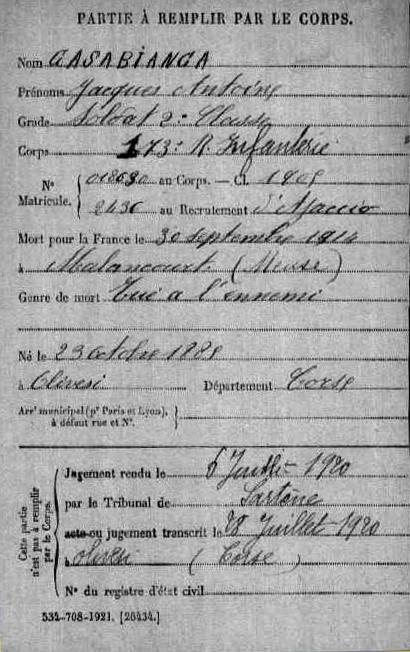 PARTIE À REMPLIR PAR LE CORPS.
Nom CASABIANCA
Prénoms Jacques Antoine
Grade Soldat 2e Classe
Corps 173e R. Infanterie
Nº Matricule. 018630 au Corps. — Cl. 1905
2436 au Recrutement d'Ajaccio
Mort pour la France le 30 septembre 1914
à Malancourt (Meuse)
Genre de mort Tué a l'ennemi
Né le 23 octobre 1885
à Olivesi Département Corse
Arrt municipal (pr Paris et Lyon),
à défaut rue et Nº.
Cette partie
n'est pas à remplir
par le Corps.
Jugement rendu le 6 Juillet 1920
par le Tribunal de Sartène
acte ou jugement transcrit le 28 Juillet 1920
à (Corse)
Nº du registre d'état civil
534-708-1921. [26434.]